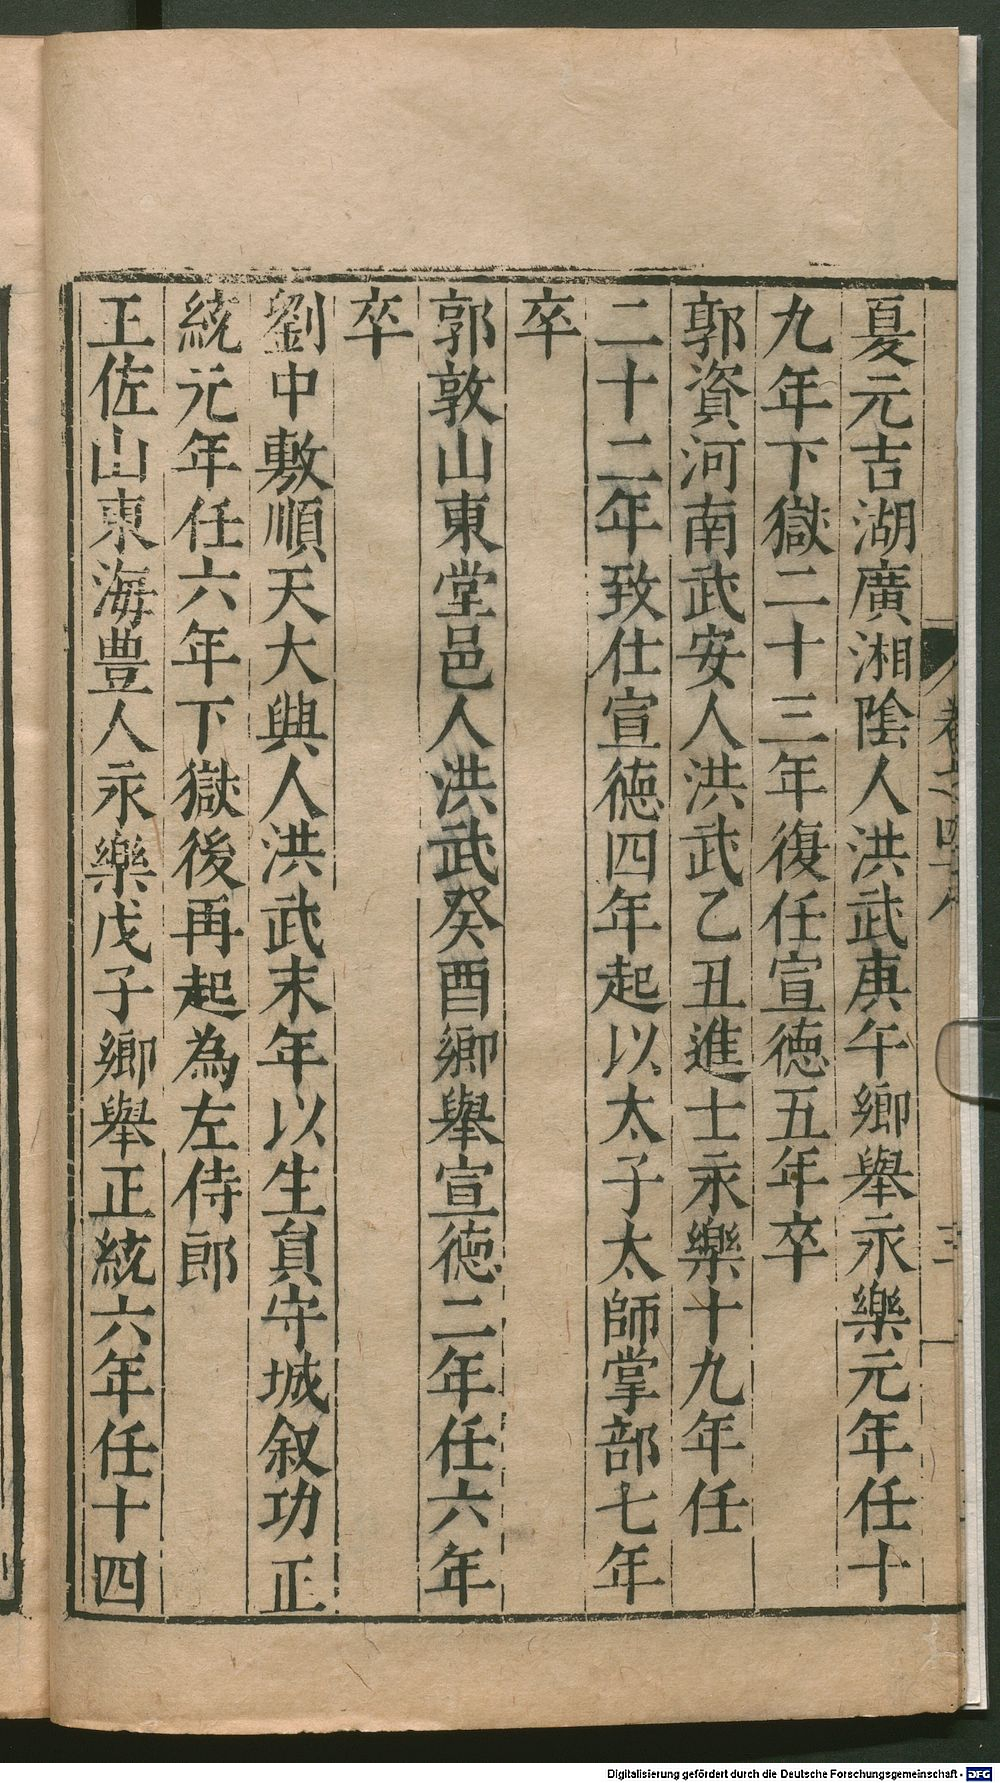 夏元吉湖廣湘陰人洪武庚午鄉舉永樂元年任十
九年下獄二十三年復任宣徳五年卒
郭資河南武安人洪武乙丑進士永樂十九年任
二十二年致仕宣徳四年起以太子太師掌部七年
卒
郭敦山東堂邑人洪武癸酉鄉舉宣徳二年任六年
卒
劉中敷順天大興人洪武末年以生員守城叙功正
統元年任六年下獄後再起為左侍郎
王佐山東海豊人永樂戊子鄉舉正統六年任十四
Digitalisierung gefördert durch die Deutsche Forschungsgemeinschaft - DFG